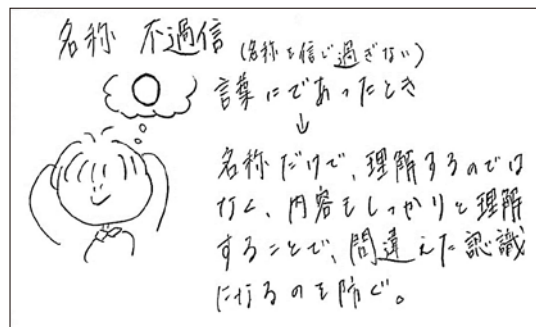 名称 不過信 (名称を信じ過ぎない)
言葉にであったとき
↓
名称だけで、理解するのでは
なく、内容もしっかりと理解
することで、間違えた認識
になるのを防ぐ。